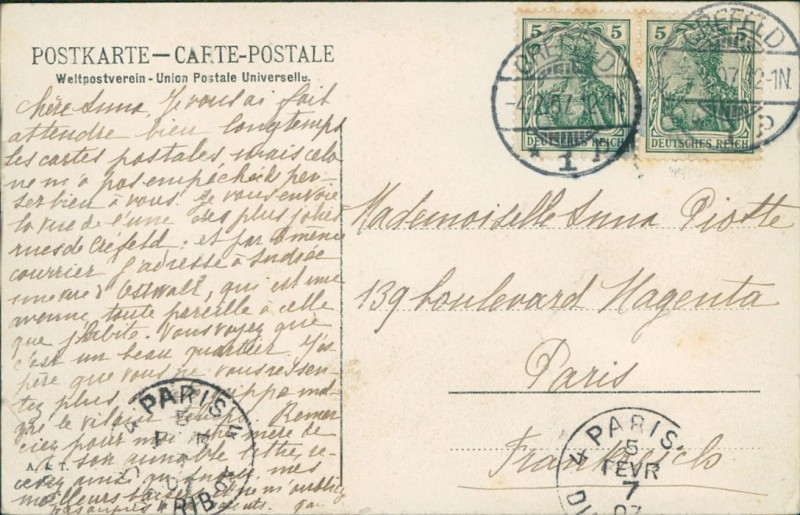 POSTKARTE — CARTE-POSTALE
Weltpostverein - Union Postale Universelle.
Chère Anna, Je vous ai fait
attendre bien longtemps
les cartes postales, mais cela
ne m'a pas empêchée pen-
ser bien à vous. Je vous envoie
la vue de l'une des plus jolies
rues de Créfeld; et par même
courrier j'adresse à Andrée
une vue d'Ostwall, qui est une
avenue, toute pareille à celle
que j'habite. Vous voyez que
c'est un beau quartier. J'es-
père que vous ne vous ressen-
tez plus grippe mal-
gré le vilain temps. Remer
ciez pour moi mère de
son aimable lettre, re-
cevez ainsi mes
meilleurs baisers et ne m'oubliez
pas auprès
A. & T.
5 5
DEUTSCHES REICH
5 5
DEUTSCHES REICH
CREFELD
12-1N
* 1
CREFELD
07.12-1N.
Mademoiselle Anna Piotte
139 boulevard Magenta
Paris
Frankreich
PARIS
5
PARIS
5
FEVR
7
07